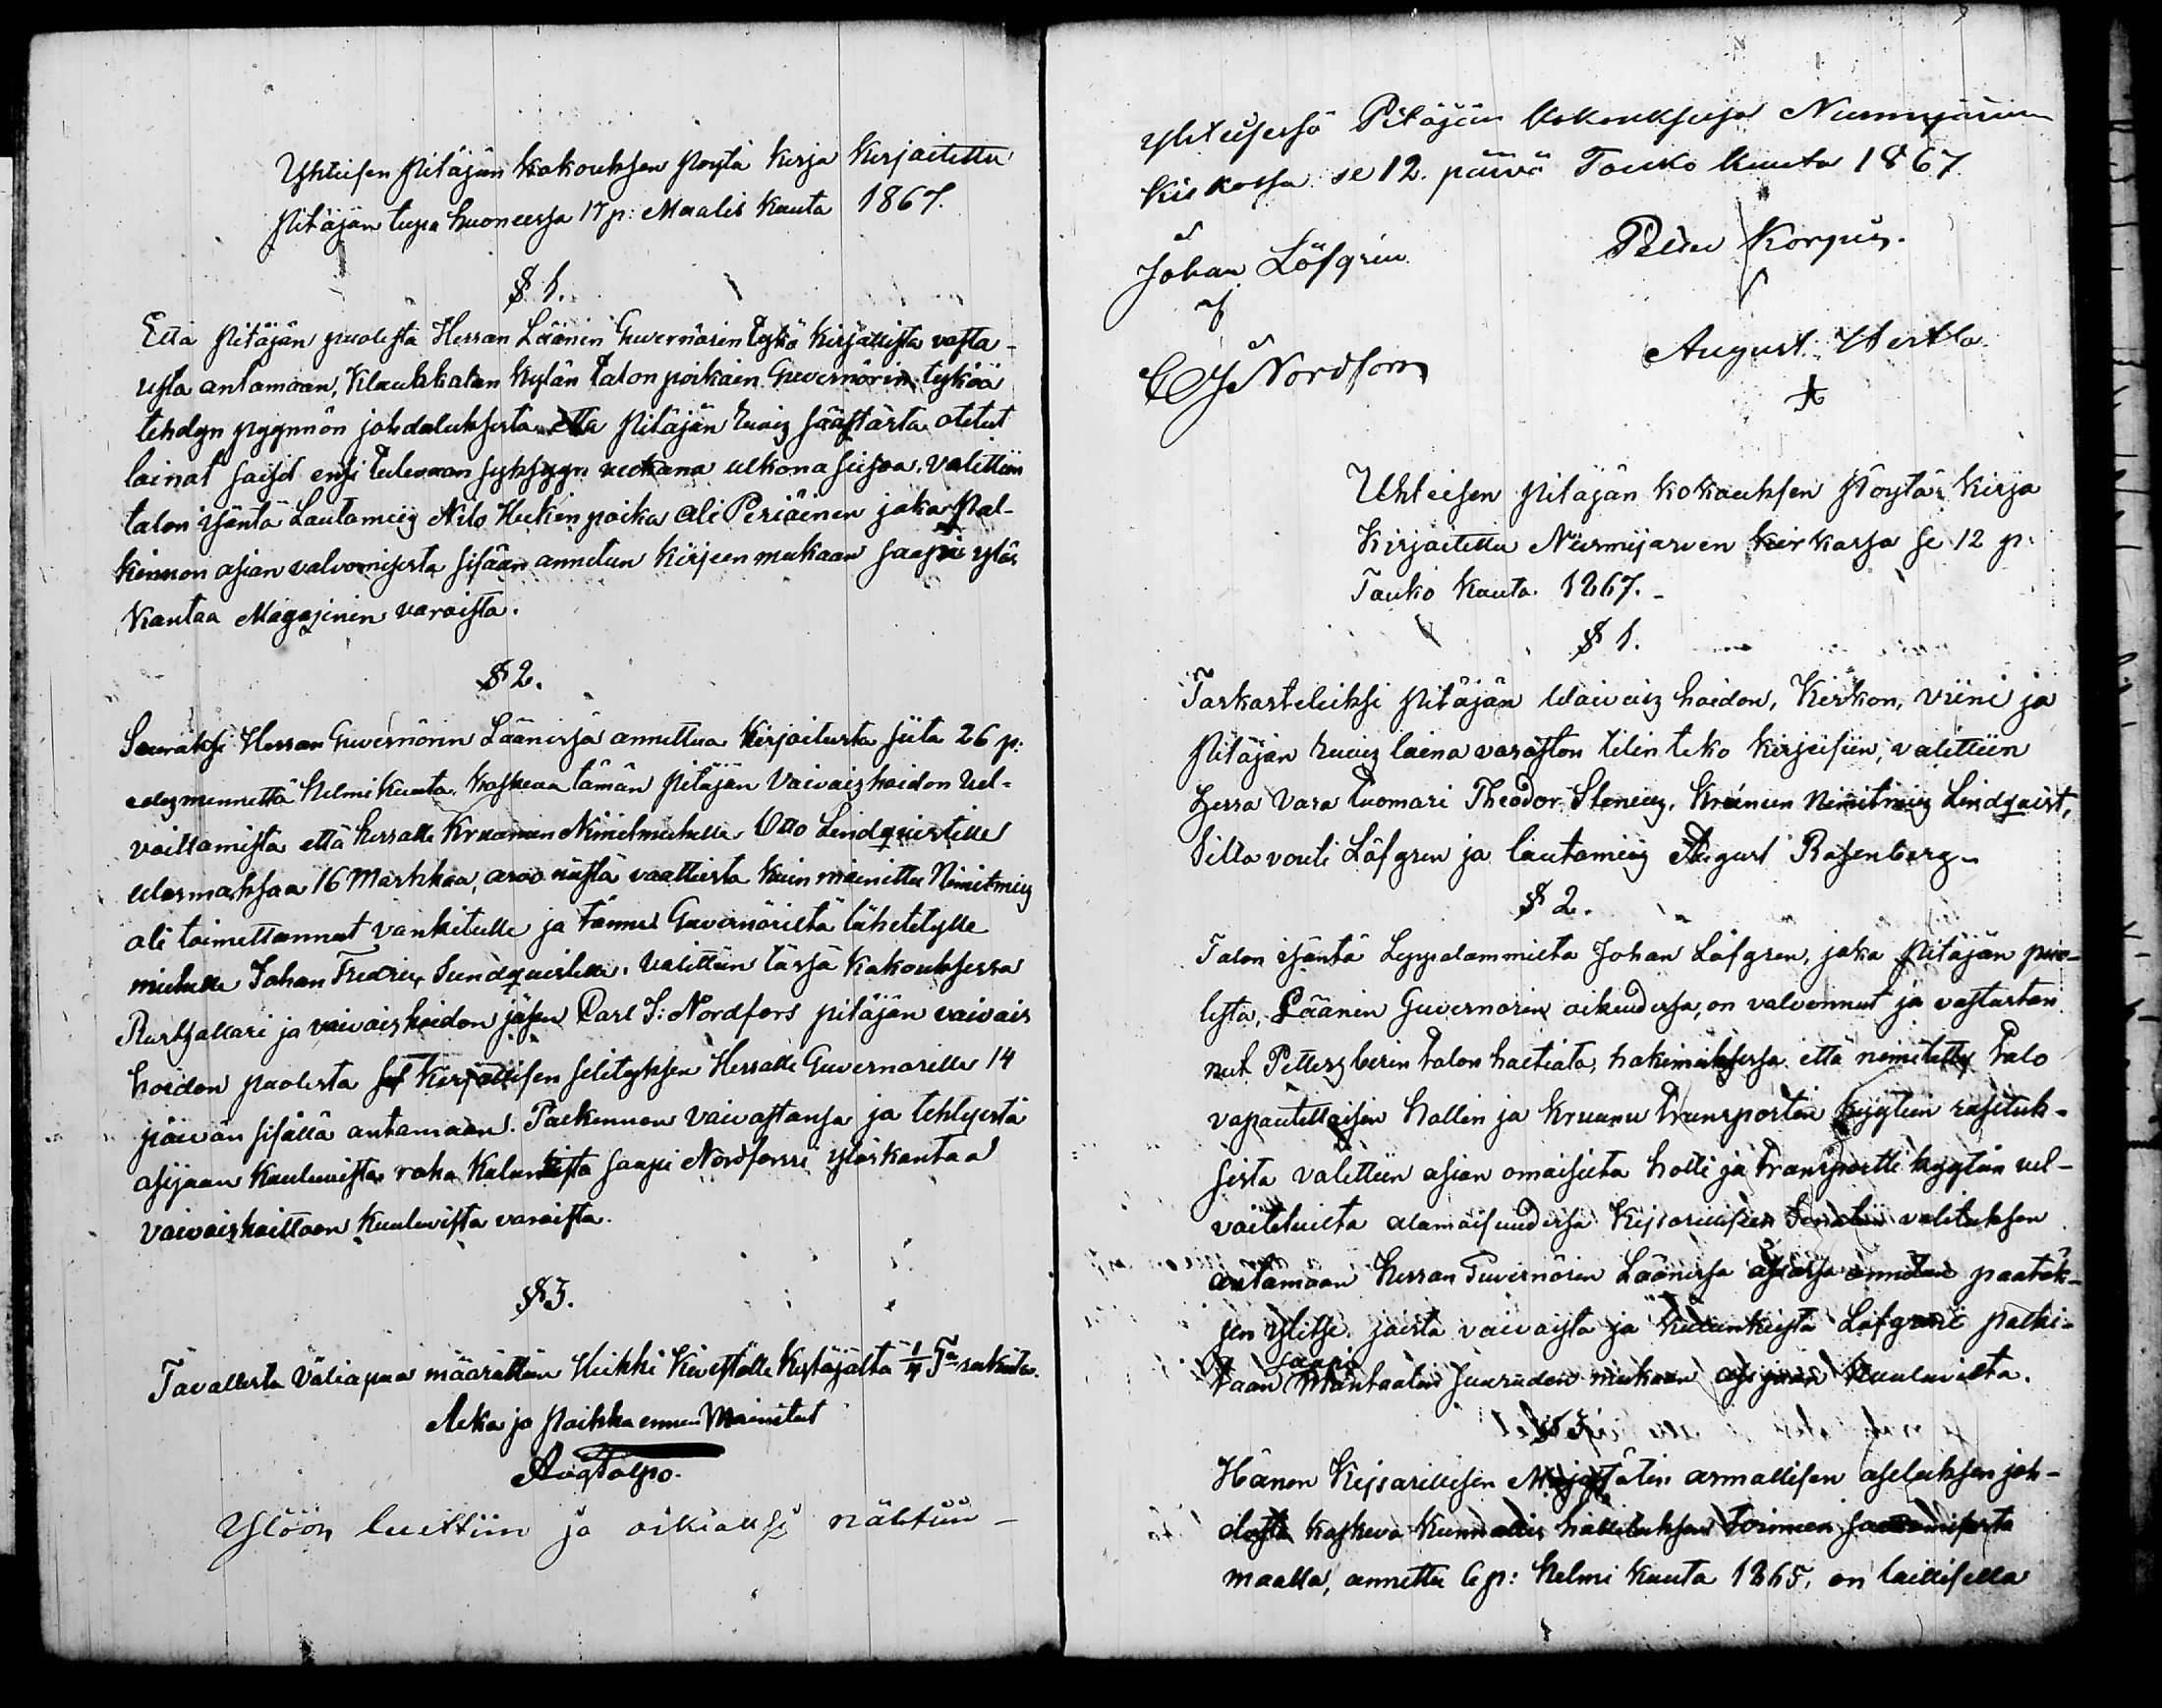 Yhteisen Pitäjän kokouksen Pöytä kirja kirjoitettu
Pitäjän tupa huoneessa 17 p: Maalis kuuta 1867.
§ 1.
Että Pitäjän puolesta Herran Läänin Guvernörin tykö kirjallista vasta-
usta antamaan, Klaukkalan kylän talon poikain Guvernörin tyköä
tehdyn pyynnön johdatuksesta että Pitäjän ruoiz säästästä otetut
lainat saisit ensi tulevaan syksyyn vuotena ulkona seisoa, valittiin
talon isäntä Lautamies Nilo Heikin poika ali Periäinen joka Pal-
kinnon asian valvomisesta sisään annetun kirjeen mukaan saapi ylös
kantaa Magasinin varoista.
§ 2.
Seuraksi Herran Guvernörin Läänissä annettua kirjoitusta siitä 26 p:
edesmennettä Helmi kuuta, koskeva tämän Pitäjän Vaivaishoidon vel-
voittamista että herralle Kruunun Nimitmiehelle Otto Lindqvistille
ulosmaksaa 16 Markkaa, arvo niistä vaatteista kuin mainittu Nimitmies
oli toimittannut vankitulle ja tänne Guvernöriltä lähetetylle
miehelle Johan Fredric Sundqvistille, valittiin tässä kokouksessa
Rustzallari ja vaivaishoidon jäsen Carl J: Nordfors pitäjän vaivais
hoidon puolesta kirjallisen selityksen Herralle Guvernörille 14
päivän sisällä antamaan. Palkinnon vaivastansa ja tehtyistä
asijaan kuuluvista raha kulunkista saapi Nordforssi ylöskantaa
vaivaishoittoon kuuluvista varoista.
§ 3.
Tavallista väliapua määrättiin Heikki Kivistölle Kytäjältä 1/4 Ta rukiita.
Aika ja Paikka ennen Mainitut
Aug Palgo.
Ylöön luettiin ja oikiaksi nähtiin –
yhteisessä Pitäjän kokouksessa Nurmijärven
Kirkossa se 12. päivä Touko kuuta 1867.
Johan Löfgrén
Petter Korpus.
C J Nordfors
August Uotila
Uhteisen Pitäjän kokouksen Pöytä kirja
Kirjoitettu Nurmijärven kirkossa se 12 p:
Touko kuuta 1867.
§ 1.
Tarkasteluiksi Pitäjän Waivaiz hoidon, Kirkon, viini ja
Pitäjän ruuiz laina varaston tilin teko kirjeisiin, valittiin
Herra Vara tuomari Theodor Stenius, Kruunun Nimitmies Lindqvist,
Silta vouti Löfgren ja lautamies August Rosenberg.
§ 2.
Talon isäntä Leppälammilta Johan Löfgren, joka Pitäjän puo-
lesta, Läänin Guvernörin oikeudessa, on valvonnut ja vastustan
nut Petters berin talon haltiata, hakemuksessa että nimitetty talo
vapautettaisiin hollin ja kruunu transportin kyytiin rasituk-
sista valittiin asian omaisilta holli ja transportti kyytiin vel-
voitetuilta alamaisuudessa Keisarillisen Senatin valituksen
antamaan Herran Guvernörin Läänissä asiassa annetun päätök-
sen ylitse, joista vaivaista ja kulunkista Löfgreni palki-
taan saapi Mantaalin suuruden mukaan asijaan kuuluvilta.
Hänen Keisarillisen Majestätin armollisen asetuksen joh-
dosta koskeva kunnallis hallituksen toimeen saattamisesta
maalla, annettu 6 p: Helmi kuuta 1865, on laillisella